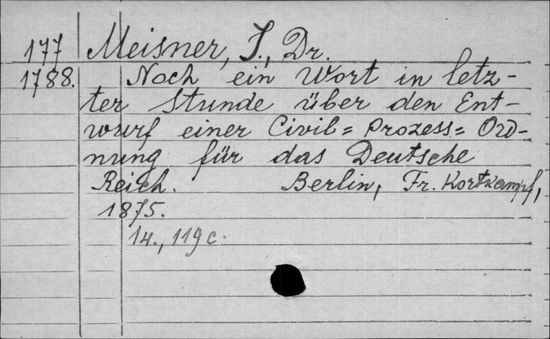 177 Meisner, J., Dr.
1788. Noch ein Wort in letz-
ter Stunde über den Ent-
wurf einer Civil=Prozess=Ord-
nung für das Deutsche
Reich. Berlin, Fr. Kortkampf,
1875.
14., 119 c.